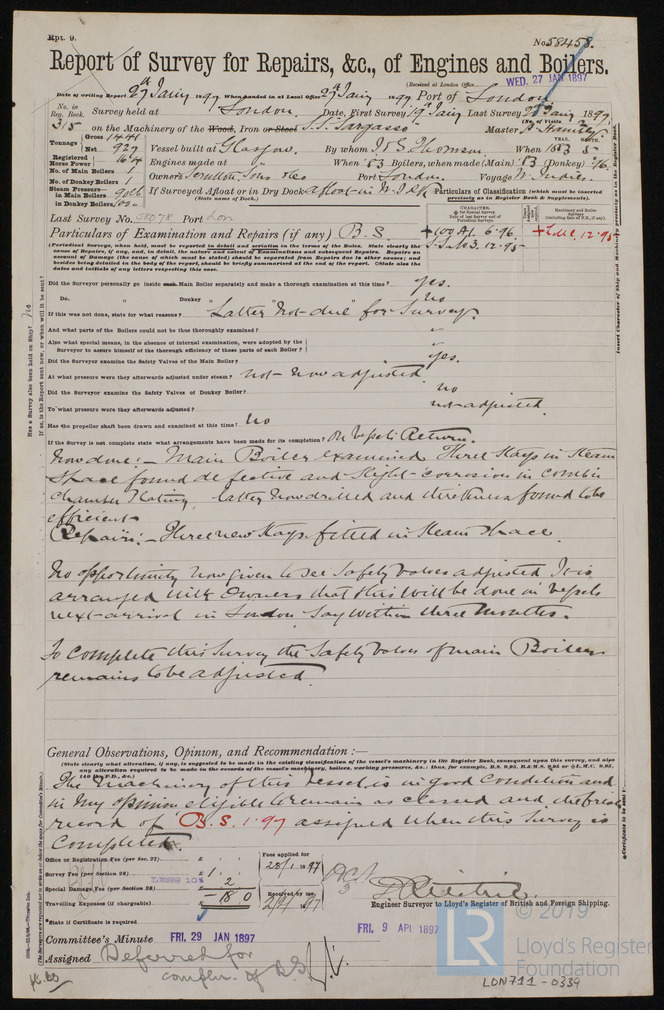 Rpt. 9.
No. 58458.
Report of Survey for Repairs, &c., of Engines and Boilers.
(Received at London Office
WED. 27 JAN 1897
Date of writing Report 27th Jany 1897 When handed in at Local Office 27th Jany 1897 Port of London
No. in Reg. Book. Survey held at London. Date, First Survey 19th Jany Last Survey Jany 1897
(No. of Visits
315 on the Machinery of the Wood, Iron or Steel S.S. Sargasso Master
Tonnage Gross 1444 Net 927
Vessel built at Glasgow. By whom J & G Thomson When 1883 5
Registered Horse Power
Engines made at When '83 Boilers, when made (Main) '83 (Donkey)
No. of Main Boilers 1
No. of Donkey Boilers 1
Owners Scrutton Sons & Co Port London. Voyage W. Indies
Steam Pressure in Main Boilers
in Donkey Boilers
If Surveyed Afloat or in Dry Dock Afloat in W.I. Dk
(State name of Dock.)
Particulars of Classification (which must be inserted precisely as in Register Book & Supplement).
Last Survey No. 58078 Port Lon
Particulars of Examination and Repairs (if any) B.S.
+100 A1. 6.96
S.S. No 3. 12.95
+LMC. 12.95
(Periodical Surveys, when held, must be reported in detail and seriatim in the terms of the Rules. State clearly the cause of Repairs, if any, and, in detail, the nature and extent of Examinations and subsequent Repairs. Repairs on account of Damage (the cause of which must be stated) should be separated from Repairs due to other causes; and besides being detailed in the body of the report, should be briefly summarised at the end of the report. State also the dates and initials of any letters respecting this case.
Did the Surveyor personally go inside each Main Boiler separately and make a thorough examination at this time? yes.
Do. " Donkey " " " no
If this was not done, state for what reasons? Latter not due for Survey.
And what parts of the Boilers could not be thus thoroughly examined?
Also what special means, in the absence of internal examination, were adopted by the Surveyor to assure himself of the thorough efficiency of those parts of each Boiler?
Did the Surveyor examine the Safety Valves of the Main Boiler? yes.
At what pressure were they afterwards adjusted under steam? not now adjusted
Did the Surveyor examine the Safety Valves of Donkey Boiler? no
To what pressure were they afterwards adjusted? not adjusted.
Has the propeller shaft been drawn and examined at this time? no
If the Survey is not complete state what arrangements have been made for its completion? On Vessels Return.
Now done: - Main Boiler examined Three Stays in Steam
Space found defective and slight corrosion in combn
Chamber Plating, latter now drilled and thickness found to be
efficient
Repairs: - Three new Stays fitted in Steam Space.
No opportunity now given to see Safety Valves adjusted It is
arranged with Owners that this will be done on Vessels
next arrival in London Say within three months.
To complete this Survey the Safety Valves of main Boilers
remains to be adjusted.
General Observations, Opinion, and Recommendation:—
(State clearly what alteration, if any, is suggested to be made in the existing classification of the vessel's machinery in the Register Book, consequent upon this survey, and also any alteration required to be made in the records of the vessel's machinery, boilers, working pressures, &c.: thus, for example, B.S. 9,95, B.&M.S. 9,95 or L.M.C. 9,95, 140 lbs., F.D., &c.)
The Machinery of this Vessel is in good Condition and
in my opinion eligible to remain as classed and the fresh
record of B.S. 1.97 assigned when this Survey is
Completed.
Office or Registration Fee (per Sec. 27)... £
Survey Fee (per Section 28)... £ 1
LESS 10% 2
Special Damage Fee (per Section 28) £
Travelling Expenses (if chargeable). £ 18 0
Fees applied for
28/1 1897
Received by me,
1897
Engineer Surveyor to Lloyd's Register of British and Foreign Shipping.
*State if Certificate is required
Committee's Minute FRI. 29 JAN 1897 FRI. 9 APL 1897
Assigned Deferred for
compln. of B.S.
© 2019
LR
Lloyd's Register
Foundation
LON711-0339